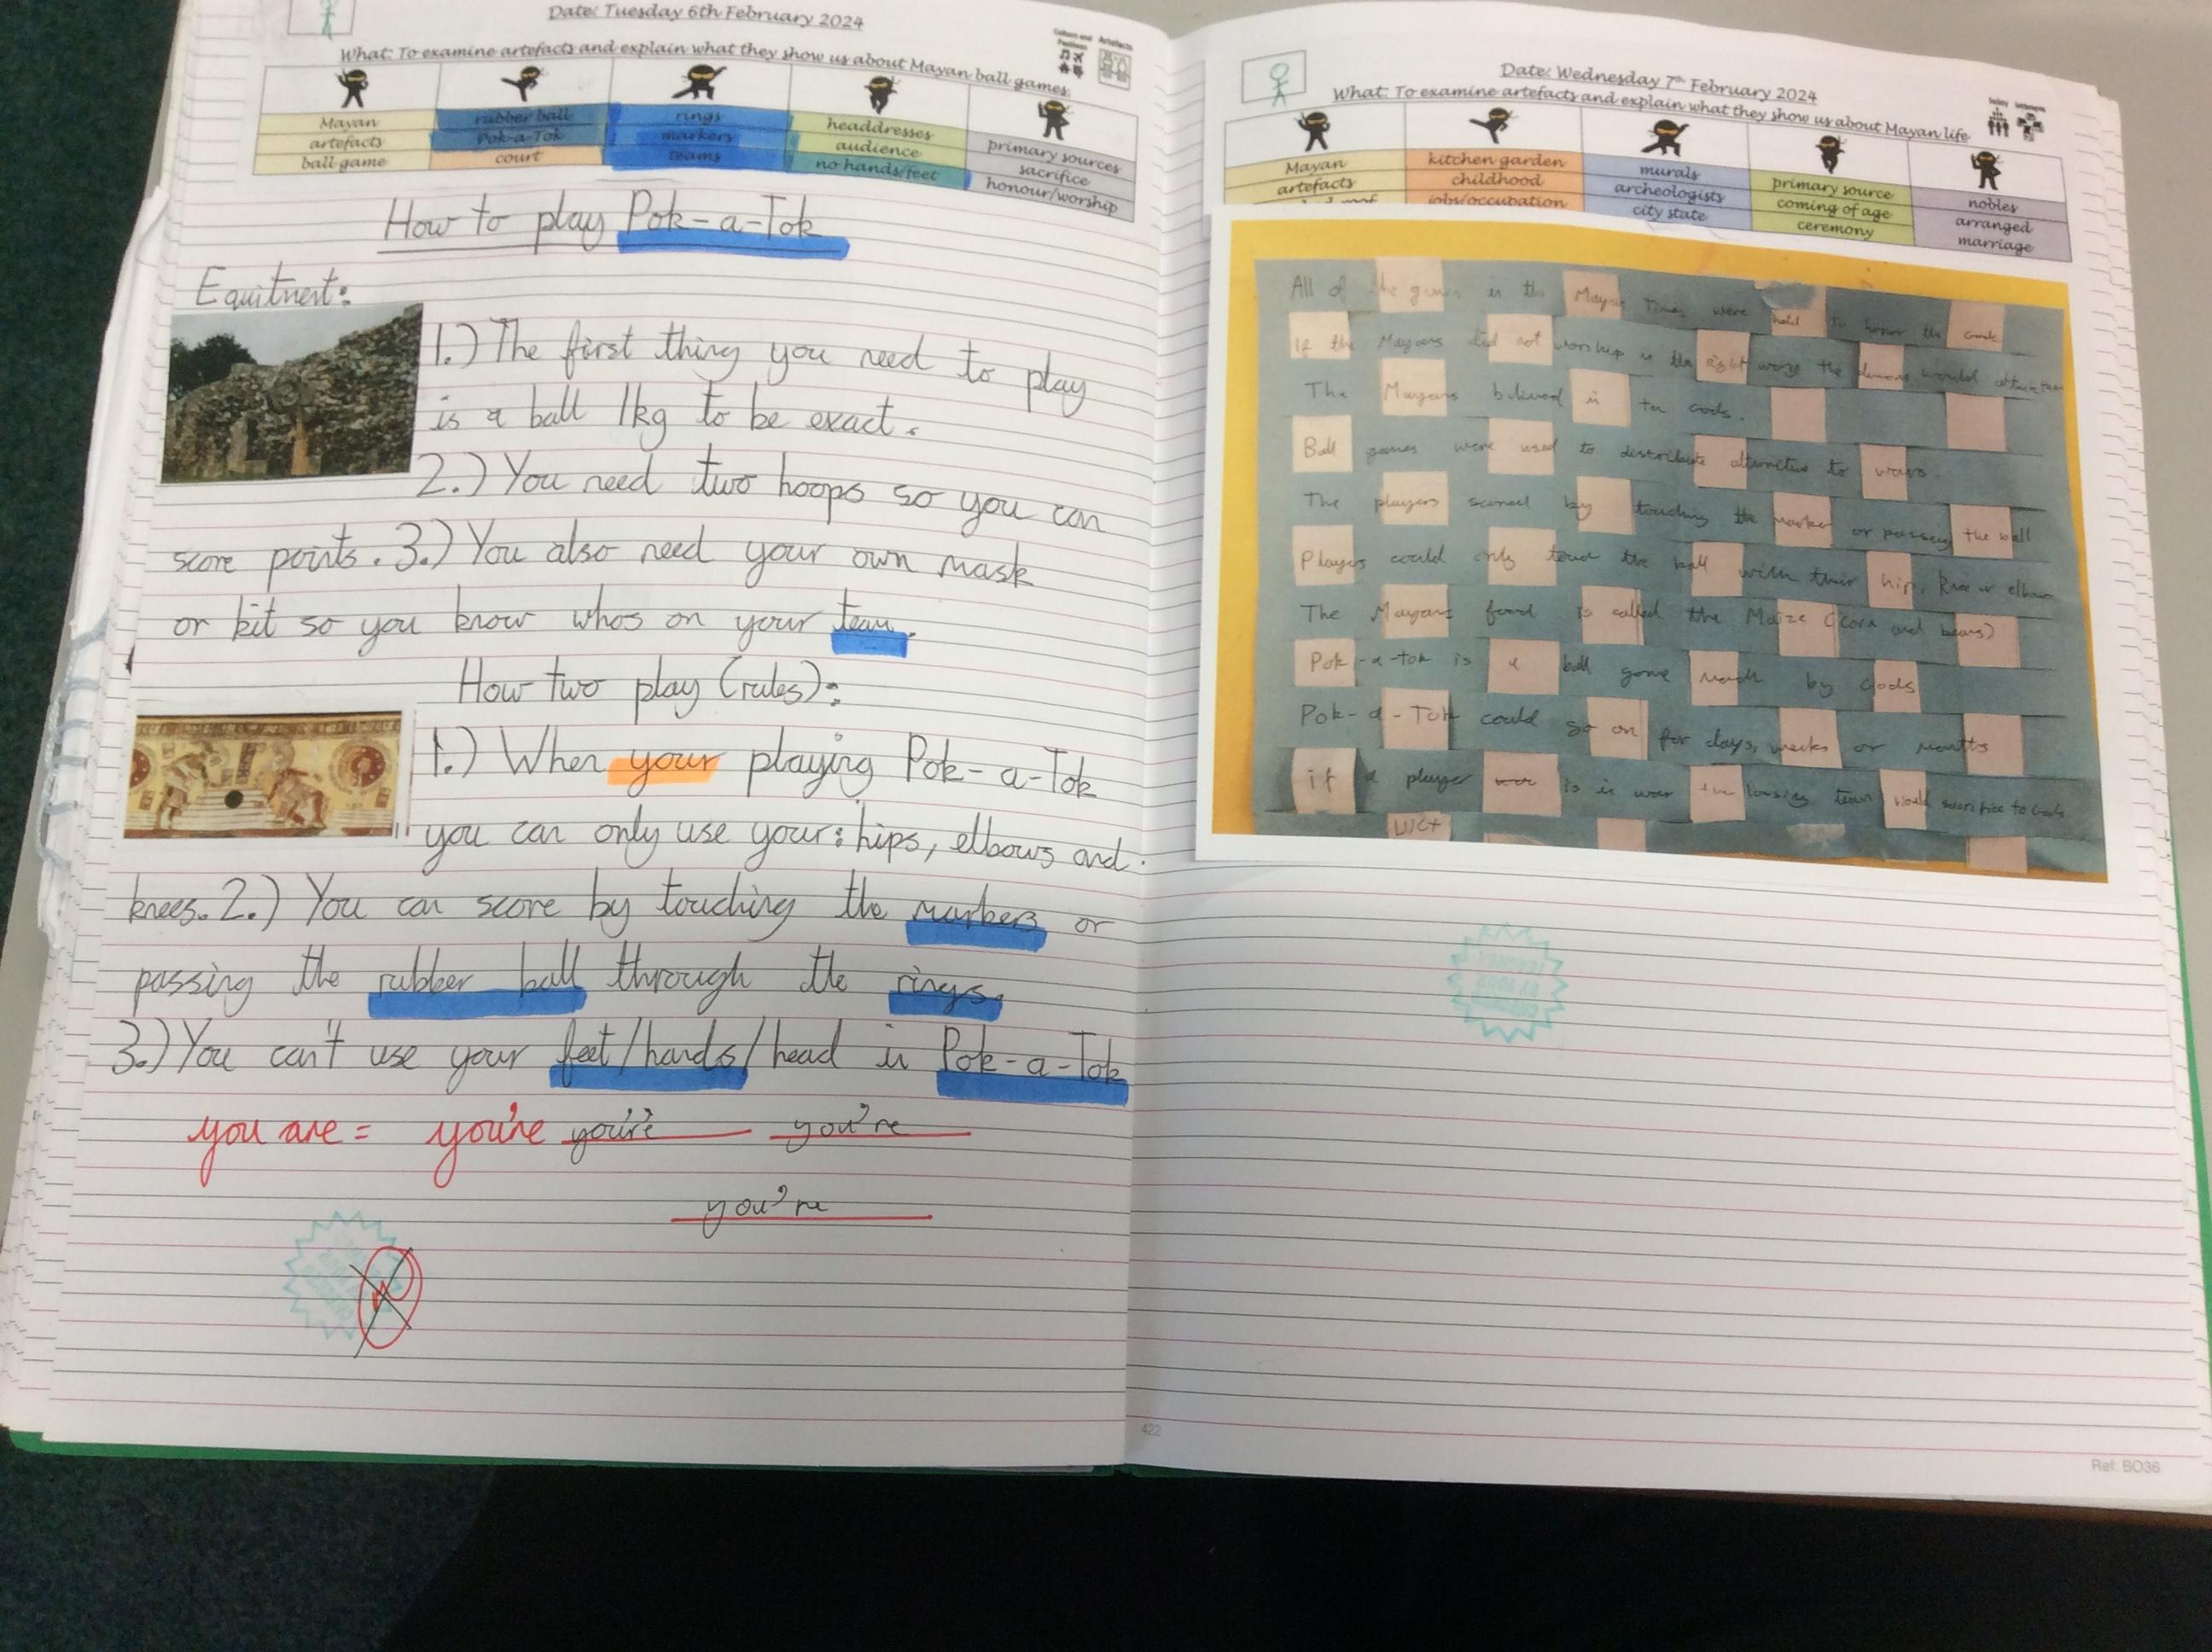 Date: Tuesday 6th February 2024
What: To examine artefacts and explain what they show us about Mayan ball games
Culture and Pastimes
Artefacts
Mayan
artefacts
ball game
rubber ball
Pok-a-Tok
court
rings
markers
teams
headdresses
audience
no hands/feet
primary sources
sacrifice
honour/worship
How to play Pok-a-Tok
Equitnent:
1.) The first thing you need to play
is a ball 1kg to be exact.
2.) You need two hoops so you can
score points. 3.) You also need your own mask
or kit so you know whos on your team.
How two play (rules):
1.) When your playing Pok-a-Tok
you can only use your: hips, elbows and
knees. 2.) You can score by touching the markers or
passing the rubber ball through the rings.
3.) You can't use your feet/hands/head in Pok-a-Tok
you are = you're you're you're
you're
422
Date: Wednesday 7th February 2024
What: To examine artefacts and explain what they show us about Mayan life
Mayan
artefacts
kitchen garden
childhood
jobs/occupation
murals
archeologists
city state
primary source
coming of age
ceremony
nobles
arranged
marriage
All of the games in the Mayan Times were held to honor the Gods
If the Mayans did not worship in the right way the demons would
The Mayans belived in ten Gods.
Ball games were used to distribute alternitive to wars.
The players scored by touching the marker or passing the ball
Players could only touch the ball with their hip, knee or elbow
The Mayans food is called the Maize (corn and beans)
Pok-a-tok is a ball game made by Gods
Pok-a-Tok could go on for days, weeks or months
if a player is in war the loosing team would sacrifice to Gods
Ref: BO36